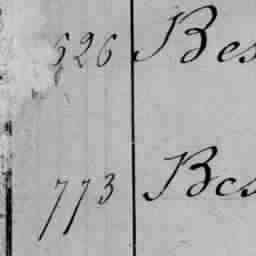 626 Bes
773 Bes